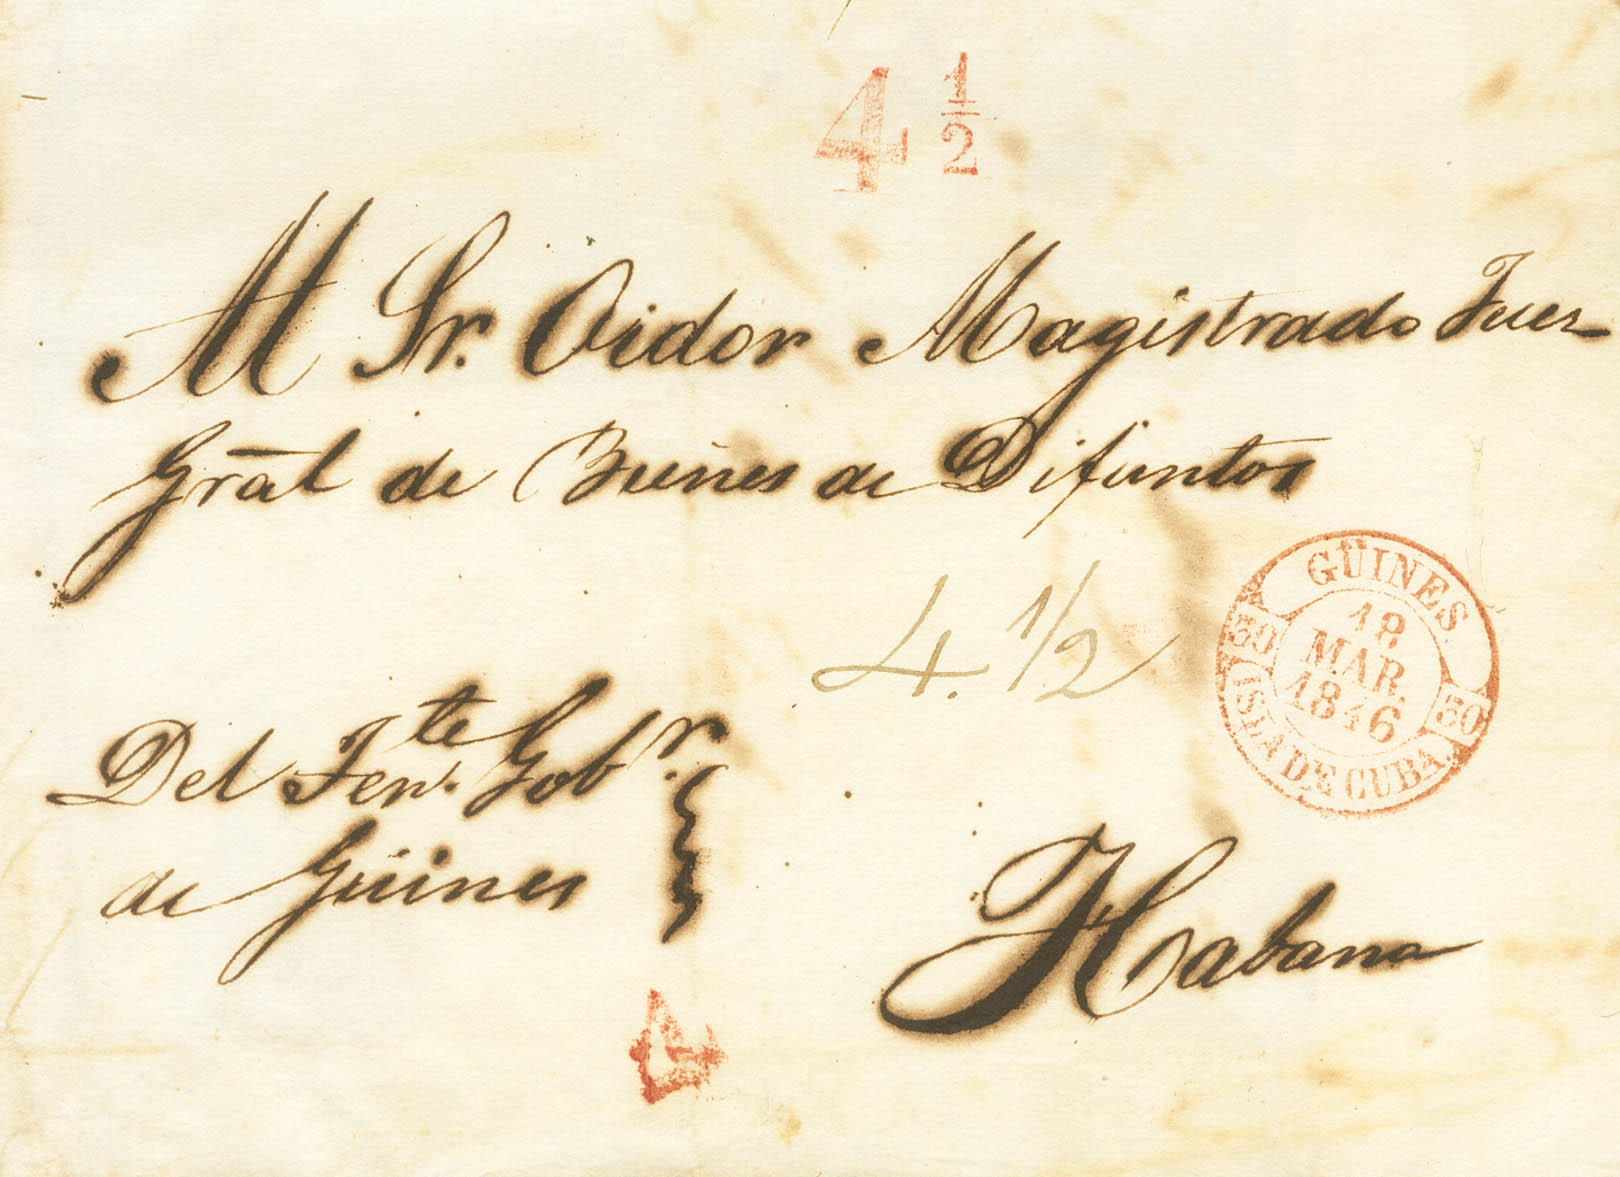 4 1/2
Al Sr. Oidor Magistrado Juez
Gr̃al de Bueñes de Difuntos
4. 1/2
GÜINES
18
MAR.
1846
30 30
ISLA DE CUBA.
Del Ten.te Gobr.
de Güines
Habana